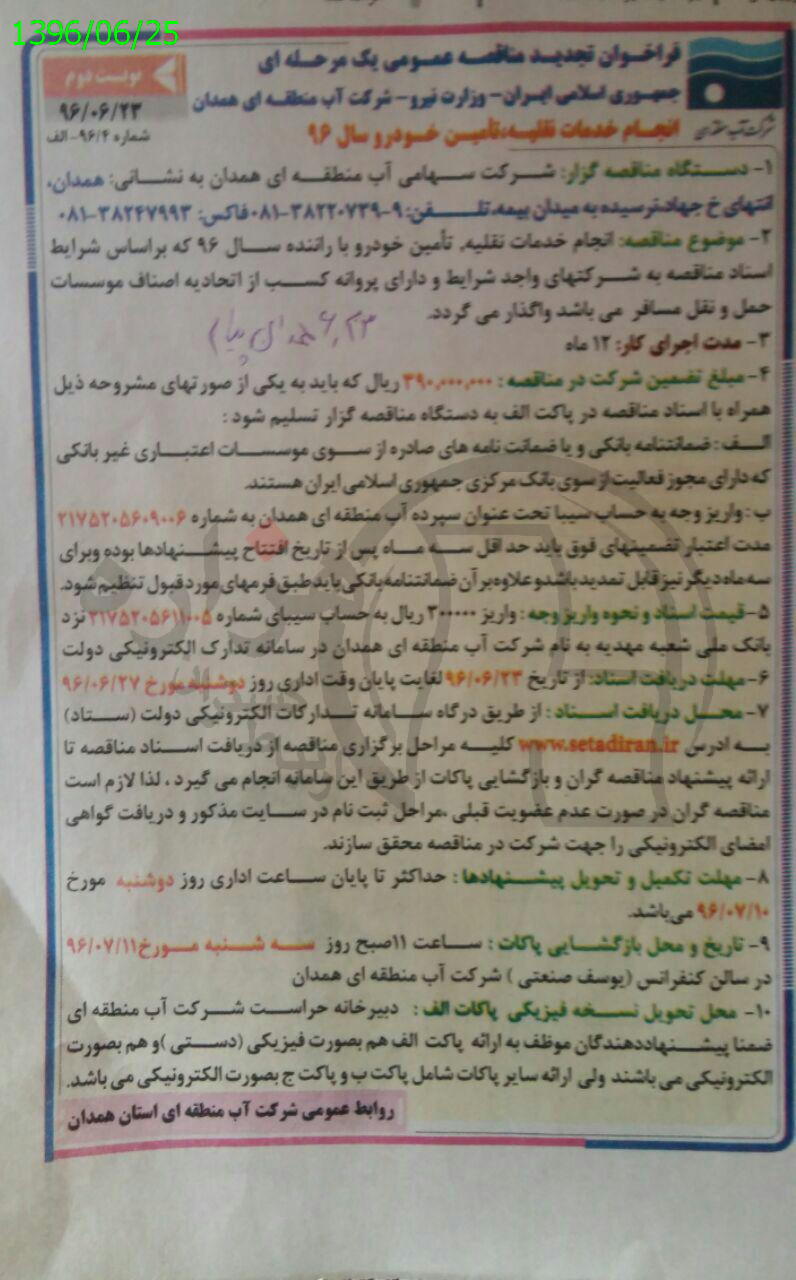 1396/06/25
فراخوان تجدید مناقصه عمومی یک مرحله ای
جمهوری اسلامی ایران- وزارت نیرو- شرکت آب منطقه ای همدان
انجام خدمات نقلیه، تأمین خودرو سال ۹۶
نوبت دوم
۹۶/۰۶/۲۳
شماره ۹۶/۴- الف
۱- دستگاه مناقصه گزار: شرکت سهامی آب منطقه ای همدان به نشانی: همدان،
انتهای خ جهاد، نرسیده به میدان بیمه، تلفن: ۹-۳۸۲۲۰۷۳۹-۰۸۱ فاکس: ۳۸۲۴۷۹۹۳-۰۸۱
۲- موضوع مناقصه: انجام خدمات نقلیه، تأمین خودرو با راننده سال ۹۶ که براساس شرایط
اسناد مناقصه به شرکتهای واجد شرایط و دارای پروانه کسب از اتحادیه اصناف موسسات
حمل و نقل مسافر می باشد واگذار می گردد.
۳- مدت اجرای کار: ۱۲ ماه
۴- مبلغ تضمین شرکت در مناقصه: ۳۹۰,۰۰۰,۰۰۰ ریال که باید به یکی از صورتهای مشروحه ذیل
همراه با اسناد مناقصه در پاکت الف به دستگاه مناقصه گزار تسلیم شود :
الف: ضمانتنامه بانکی و یا ضمانت نامه های صادره از سوی موسسات اعتباری غیر بانکی
که دارای مجوز فعالیت از سوی بانک مرکزی جمهوری اسلامی ایران هستند.
ب: واریز وجه به حساب سیبا تحت عنوان سپرده آب منطقه ای همدان به شماره ۲۱۷۵۲۰۵۶۰۹۰۰۶
مدت اعتبار تضمینهای فوق باید حداقل سه ماه پس از تاریخ افتتاح پیشنهادها بوده وبرای
سه ماه دیگر نیز قابل تمدید باشد و علاوه بر آن ضمانتنامه بانکی باید طبق فرمهای مورد قبول تنظیم شود.
۵- قیمت اسناد و نحوه واریز وجه : واریز ۳۰۰۰۰۰ ریال به حساب سیبای شماره ۲۱۷۵۲۰۵۶۱۱۰۰۵ نزد
بانک ملی شعبه مهدیه به نام شرکت آب منطقه ای همدان در سامانه تدارک الکترونیکی دولت
۶- مهلت دریافت اسناد: از تاریخ ۹۶/۰۶/۲۳ لغایت پایان وقت اداری روز دوشنبه مورخ ۹۶/۰۶/۲۷
۷- محل دریافت اسناد : از طریق درگاه سامانه تدارکات الکترونیکی دولت (ستاد)
به ادرس www.setadiran.ir کلیه مراحل برگزاری مناقصه از دریافت اسناد مناقصه تا
ارائه پیشنهاد مناقصه گران و بازگشایی پاکات از طریق این سامانه انجام می گیرد ، لذا لازم است
مناقصه گران در صورت عدم عضویت قبلی ،مراحل ثبت نام در سایت مذکور و دریافت گواهی
امضای الکترونیکی را جهت شرکت در مناقصه محقق سازند.
۸- مهلت تکمیل و تحویل پیشنهادها : حداکثر تا پایان ساعت اداری روز دوشنبه مورخ
۹۶/۰۷/۱۰ می‌باشد.
۹- تاریخ و محل بازگشایی پاکات : ساعت ۱۱صبح روز سه شنبه مورخ۹۶/۰۷/۱۱
در سالن کنفرانس (یوسف صنعتی ) شرکت آب منطقه ای همدان
۱۰- محل تحویل نسخه فیزیکی پاکات الف : دبیرخانه حراست شرکت آب منطقه ای
ضمنا پیشنهاددهندگان موظف به ارائه پاکت الف هم بصورت فیزیکی (دستی )و هم بصورت
الکترونیکی می باشند ولی ارائه سایر پاکات شامل پاکت ب و پاکت ج بصورت الکترونیکی می باشد.
روابط عمومی شرکت آب منطقه ای استان همدان